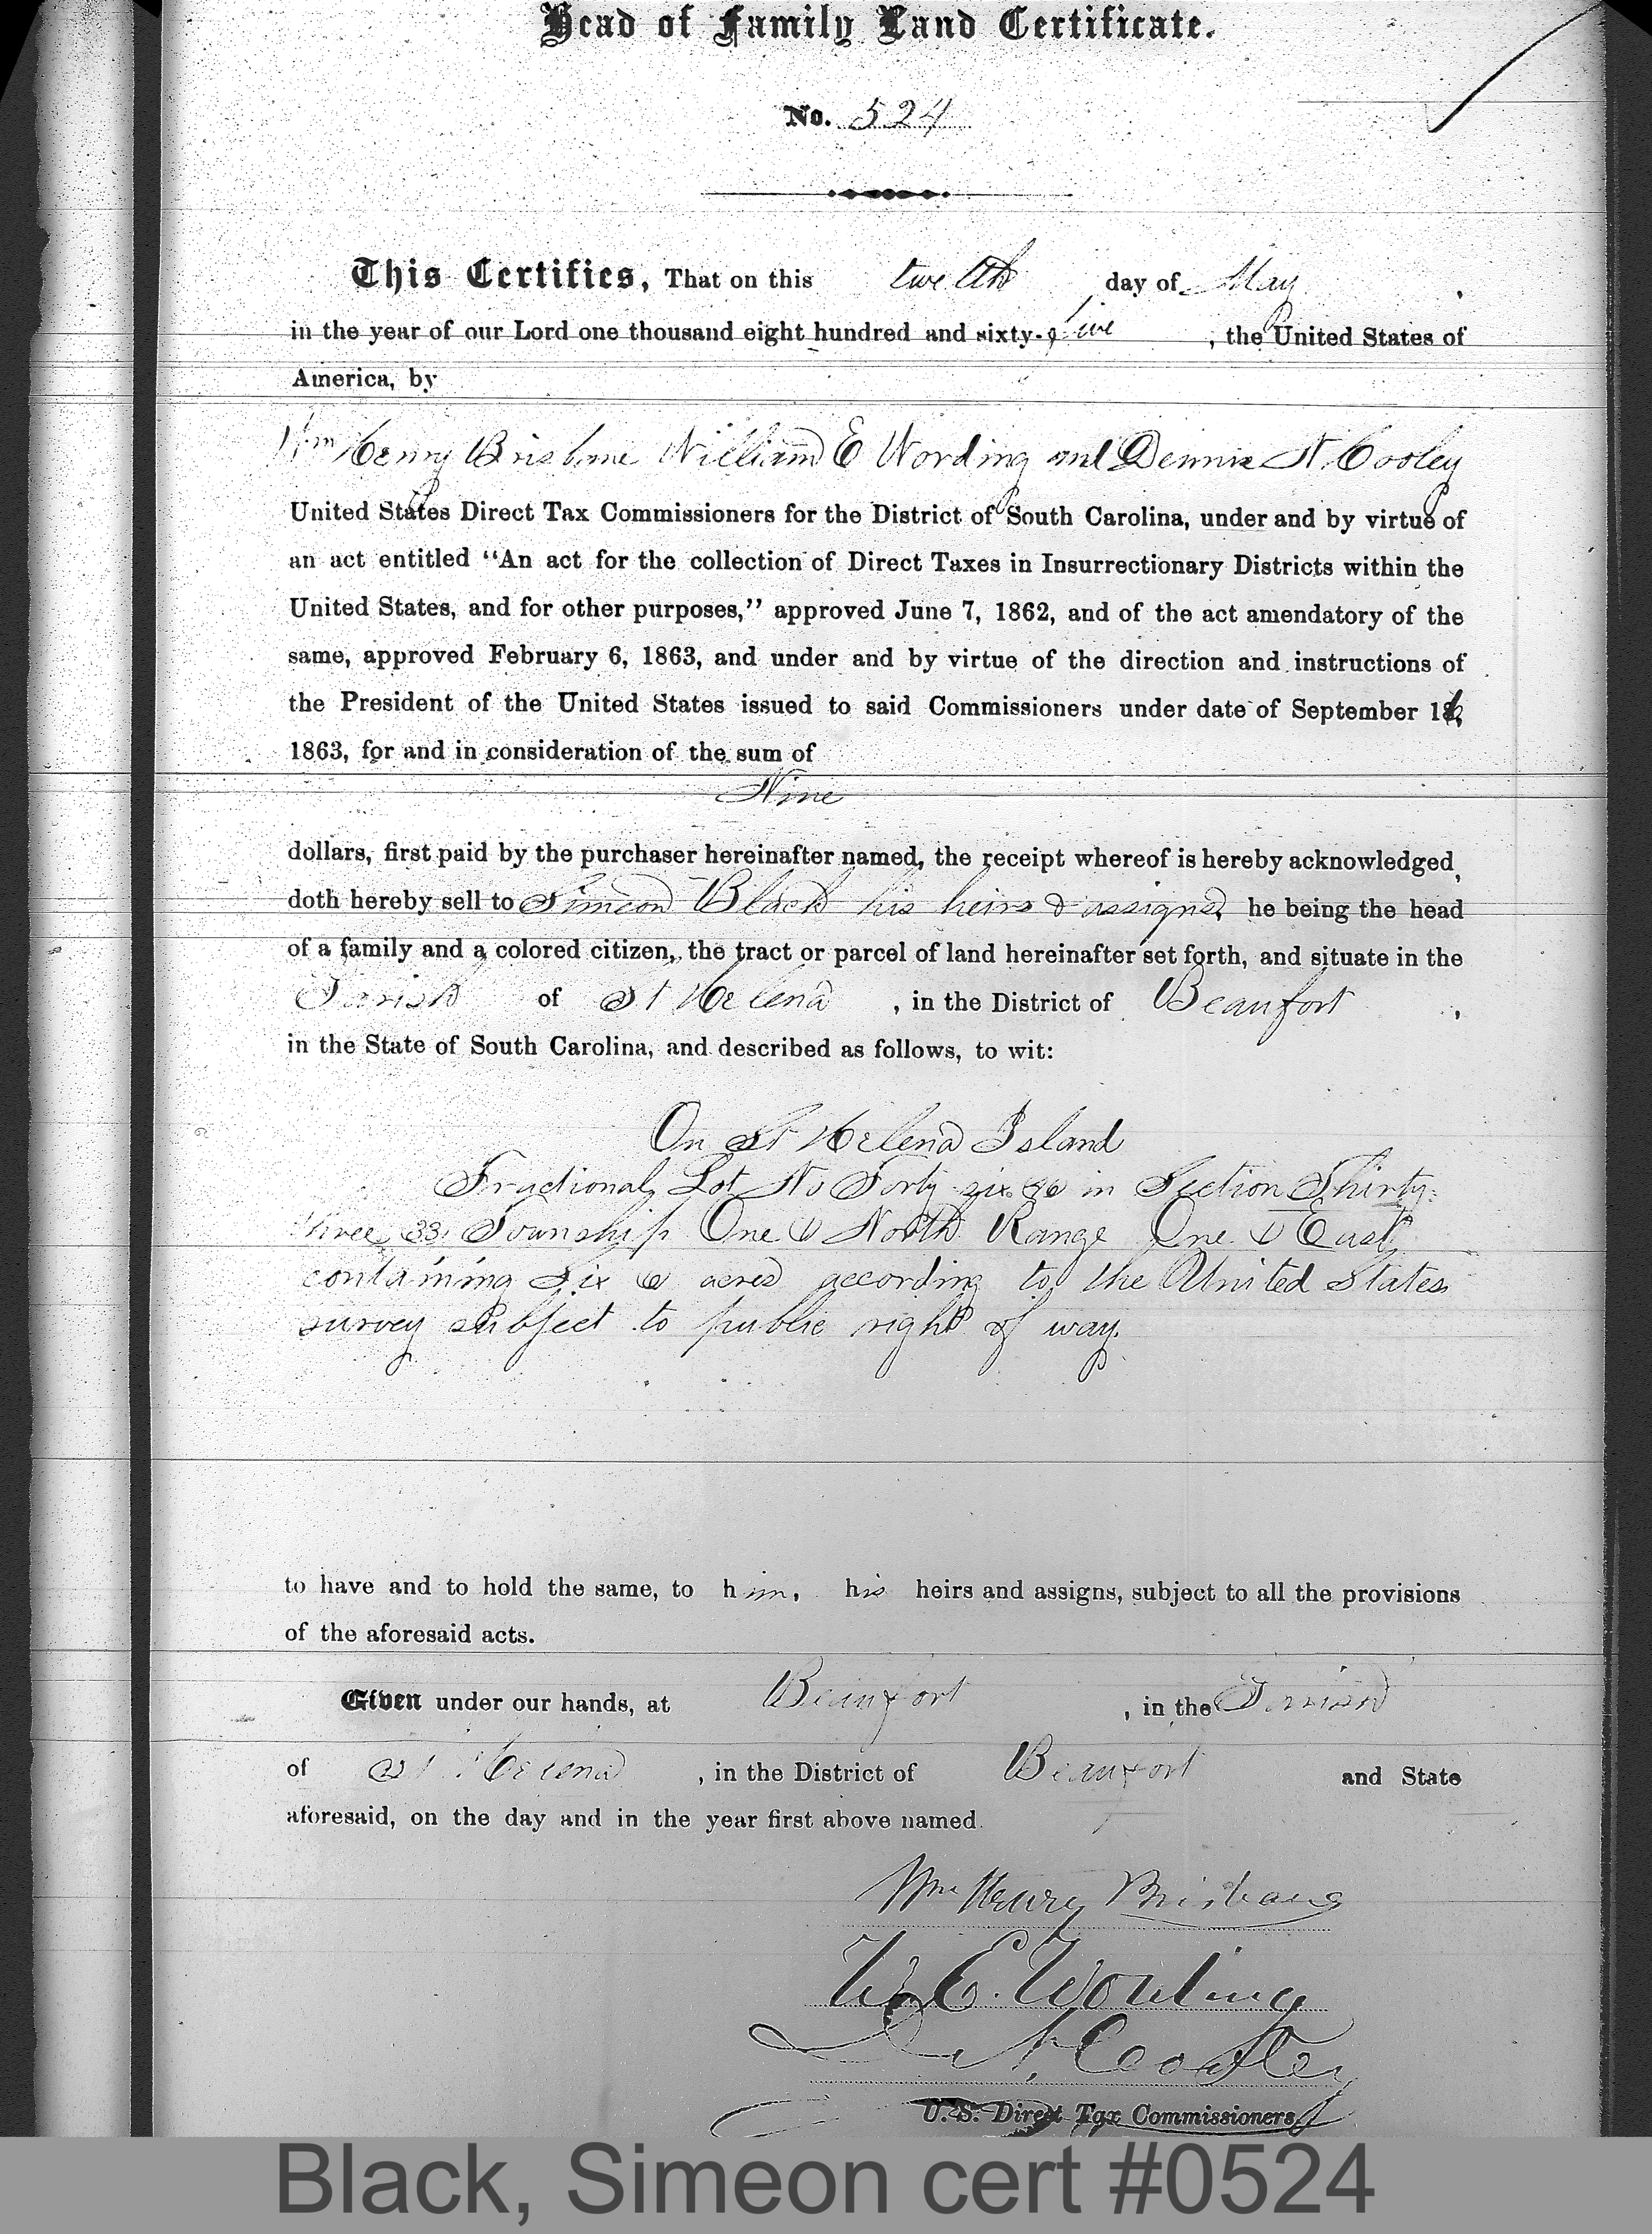 Head of Family Land Certificate.
No. 524
This Certifies, That on this twelth day of May,
in the year of our Lord one thousand eight hundred and sixty-five, the United States of
America, by
Wm Henry Brisbane William E Wording and Dennis N. Cooley
United States Direct Tax Commissioners for the District of South Carolina, under and by virtue of
an act entitled "An act for the collection of Direct Taxes in Insurrectionary Districts within the
United States, and for other purposes," approved June 7, 1862, and of the act amendatory of the
same, approved February 6, 1863, and under and by virtue of the direction and instructions of
the President of the United States issued to said Commissioners under date of September 16,
1863, for and in consideration of the sum of
Nine
dollars, first paid by the purchaser hereinafter named, the receipt whereof is hereby acknowledged,
doth hereby sell to Simeon Black his heirs & assigns, he being the head
of a family and a colored citizen, the tract or parcel of land hereinafter set forth, and situate in the
Parish of St Helena, in the District of Beaufort,
in the State of South Carolina, and described as follows, to wit:
On St Helena Island
Fractional Lot No Forty six 46 in Section Thirty-
three 33, Township One 1 North Range One 1 East,
containing Six 6 acres according to the United States
survey subject to public right of way.
to have and to hold the same, to him, his heirs and assigns, subject to all the provisions
of the aforesaid acts.
Given under our hands, at Beaufort, in the Parish
of St Helena, in the District of Beaufort and State
aforesaid, on the day and in the year first above named.
Wm Henry Brisbane
W. E. Wording
D. N. Cooley
U. S. Direct Tax Commissioners.
Black, Simeon cert #0524